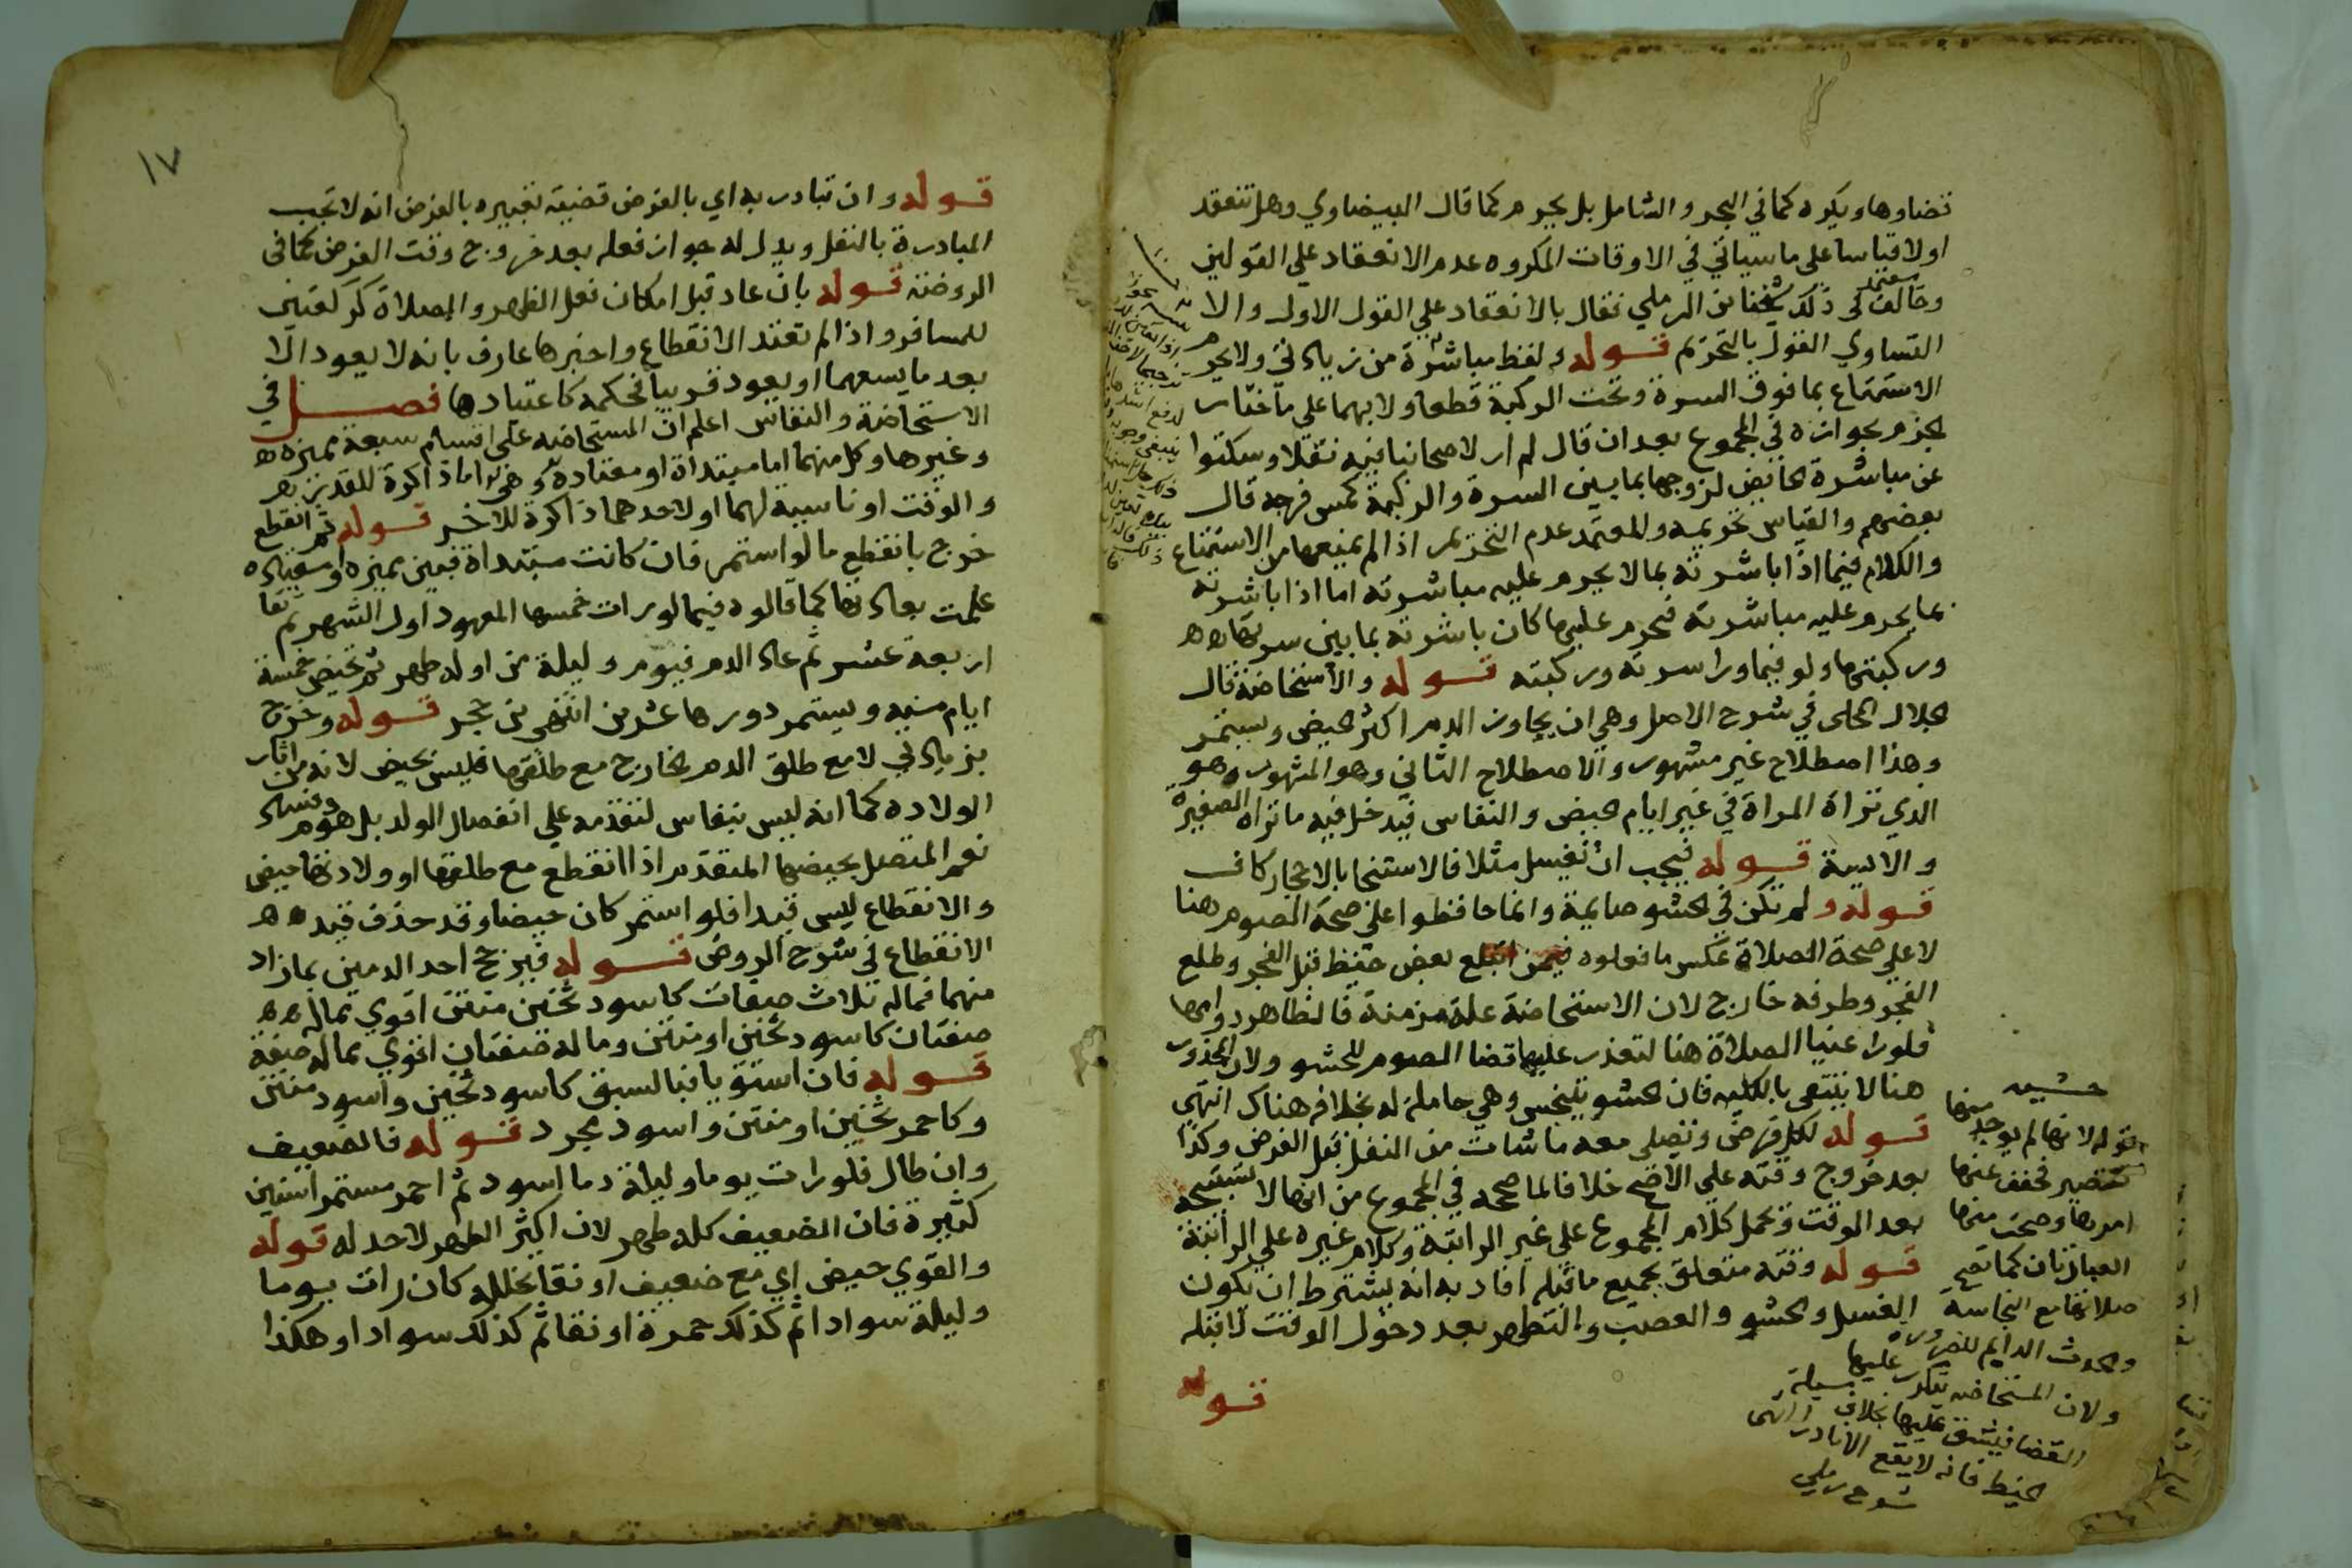 قضاوها ويكره كما في البحر والشامل بل يحرم كما قال البيضاوي وهل تنعقد
اولا قياسا على ما سياتي في الاوقات المكروه عدم الانعقاد علي القولين
وخالف في ذلك شيخنا ابن الرملي فقال بالانعقاد علي القول الاول والا
التساوي القول بالتحريم قوله ولفظ مباشرة من زيادتي ولا يحرم
الاستمتاع بما فوق السرة وتحت الركبة قطعا ولا بهما على ما اختار
الجزم بجوازه في المجموع بعد ان قال لم ار لاصحابنا فيه نقلا وسكتوا
عن مباشرة الحايض لزوجها بما بين السرة والركبة كمس فرجه قال
بعضهم والقياس تحريمه والمعتمد عدم التحريم اذا لم يمنعها من الاستمتاع
والكلام فيما اذا باشرته بما لا يحرم عليه مباشرته اما اذا باشرته
بما يحرم عليه مباشرته فيحرم عليها كان باشرته بما بين سرتها
وركبتها ولو فيما ورا سرته وركبته قوله والاستحاضة قال
الجلال المحلى في شرح الاصل وهي ان يجاوز الدم اكثر الحيض ويستمر
وهذا اصطلاح غير مشهور والاصطلاح الثاني وهو المشهور وهو
الذي تراه المراة في غير ايام الحيض والنفاس فيدخل فيه ما تراه الصغيرة
والايسة قوله فيجب ان تغسل مثلا فالاستنجا بالاحجار كاف
قوله ولم تكن في الحشو صايمة وانما حافظوا علي صحة الصوم هنا
لا علي صحة الصلاة عكس ما فعلوه فيمن ابتلع بعض خيط قبل الفجر وطلع
الفجر وطرفه خارج لان الاستحاضة علة مزمنة فالظاهر دوامها
فلو راعينا الصلاة هنا لتعذر عليها قضا الصوم للحشو ولان المحذور
هنا لا ينتفي بالكليه فان الحشو يتنجس وهي حاملة له بخلافه هناك انتهى
قوله لكل فرض وتصلى معه ما شات من النفل قبل الفرض وكذا
بعد خروج وقته علي الاصح خلافا لما صححه في المجموع من انها لا تستبيحه
بعد الوقت ويحمل كلام المجموع على غير الراتبة وكلام غيره على الراتبة
قوله وقته متعلق بجميع ما قبله افاد به انه يشترط ان يكون
الغسل والحشو والعصب والتطهر بعد دخول الوقت لا قبله
قوله
حشيه
قوله لانها لم يوجد منها
تقصير فخفف عنها
امرها وصحت منها
العبادتان كما تصح
صلاتها مع النجاسة
والحدث الدايم للضرورة
ولان المستحاضه يتكرر عليها
القضا فيشق عليها بخلاف مسيلة
الخيط فانه لا يقع الا نادرا انتهى
شرح رملي
١٧
قوله وان تبادر به اي بالفرض قضية تعبيره بالفرض انه لا تجب
المبادرة بالنفل ويدل له جواز فعله بعد خروج وقت الفرض كما في
الروضة قوله بان عاد قبل امكان فعل الطهر والصلاة كركعتين
للمسافر واذا لم تعتد الانقطاع واخبرها عارف بانه لا يعود الا
بعد ما يسعهما او يعود قريبا فحكمه كاعتيادها فصل في
الاستحاضة والنفاس اعلم ان المستحاضه على اقسام سبعة مميزة
وغيرها وكل منهما اما مبتداة او معتادة وهي اما ذاكرة للقدر
والوقت او ناسية لهما او لاحدهما ذاكرة للاخر قوله ثم انقطع
خرج بانقطع ما لو استمر فان كانت مبتداة فغير مميزة او معتاده
علمت بعادتها كما قالوه فيما لو رات خمستها المعهود اول الشهر ثم نقا
اربعة عشر ثم عاد الدم فيوم وليلة من اوله طهر ثم تحيض خمسة
ايام منه ويستمر دورها عشرين انتهى بن حجر قوله وخرج
بزيادتي لا مع طلق الدم الخارج مع طلقها فليس بحيض لانه من اثار
الولاده كما انه ليس بنفاس لتقدمه علي انفصال الولد بل هو دم فساد
نعم المتصل بحيضها المتقدم اذا انقطع مع طلقها او ولادتها حيض
والانقطاع ليس قيدا فلو استمر كان حيضا وقد حذف قيد
الانقطاع في شرح الروض قوله فيرجح احد الدمين بما زاد
منهما فماله ثلاث صفات كاسود ثخين منتن اقوي مما له
صفتان كاسود ثخين او منتن وما له صفتان اقوي مما له صفة
قوله فان استويا فبالسبق كاسود ثخين واسود منتن
وكاحمر ثخين او منتن واسود مجرد قوله فالضعيف
وان طال فلو رات يوما وليلة دما اسود ثم احمر مستمرا سنين
كثيرة فان الضعيف كله طهر لان اكثر الطهر لا حد له قوله
والقوي حيض اي مع ضعيف او نقا تخلله كان رات يوما
وليلة سوادا ثم كذلك حمرة او نقا ثم كذلك سوادا وهكذا